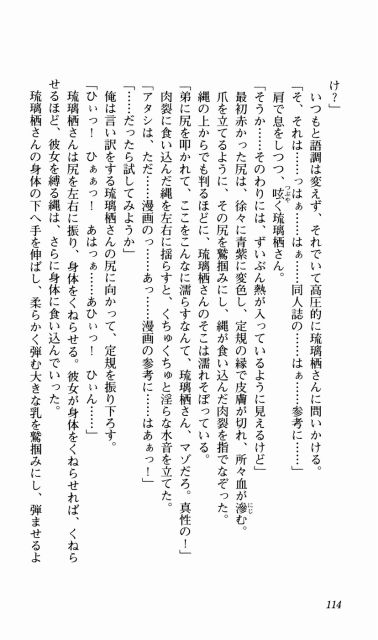 け？」
いつもと語調は変えず、それでいて高圧的に琉璃栖さんに問いかける。
「そ、それは……っはぁ……はぁ……同人誌の……はぁ……参考に……」
肩で息をしつつ、呟く琉璃栖さん。
「そうか……そのわりには、ずいぶん熱が入っているように見えるけど」
最初赤かった尻は、徐々に青紫に変色し、定規の縁で皮膚が切れ、所々血が滲む。
爪を立てるように、その尻を鷲掴みにし、縄が食い込んだ肉裂を指でなぞった。
縄の上からでも判るほどに、琉璃栖さんのそこは濡れそぼっている。
「弟に尻を叩かれて、ここをこんなに濡らすなんて、琉璃栖さん、マゾだろ。真性の！」
肉裂に食い込んだ縄を左右に揺らすと、くちゅくちゅと淫らな水音を立てた。
「アタシは、ただ……漫画のっ……あっ……漫画の参考に……はあぁっ！」
「……だったら試してみようか」
俺は言い訳をする琉璃栖さんの尻に向かって、定規を振り下ろす。
「ひぃっ！　ひぁぁっ！　あはっぁ……あひぃっ！　ひぃん……」
琉璃栖さんは尻を左右に振り、身体をくねらせる。彼女が身体をくねらせれば、くねら
せるほど、彼女を縛る縄は、さらに身体に食い込んでいった。
琉璃栖さんの身体の下へ手を伸ばし、柔らかく弾む大きな乳を鷲掴みにし、弾ませるよ
114